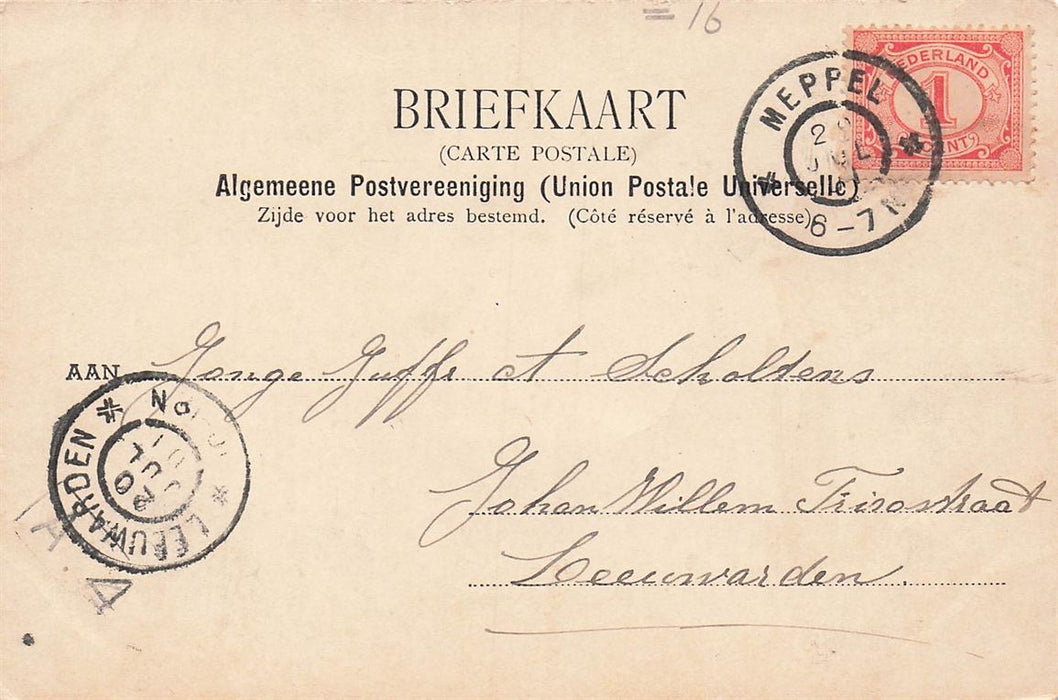 16
NEDERLAND
1
MEPPEL
JUL
6-7 N
BRIEFKAART
(CARTE POSTALE)
Algemeene Postvereeniging (Union Postale Universelle)
Zijde voor het adres bestemd. (Côté réservé à l'adresse)
AAN Jonge Juffr A Scholtens
Johan Willem Frisostraat
Leeuwarden.
LEEUWARDEN
JUL